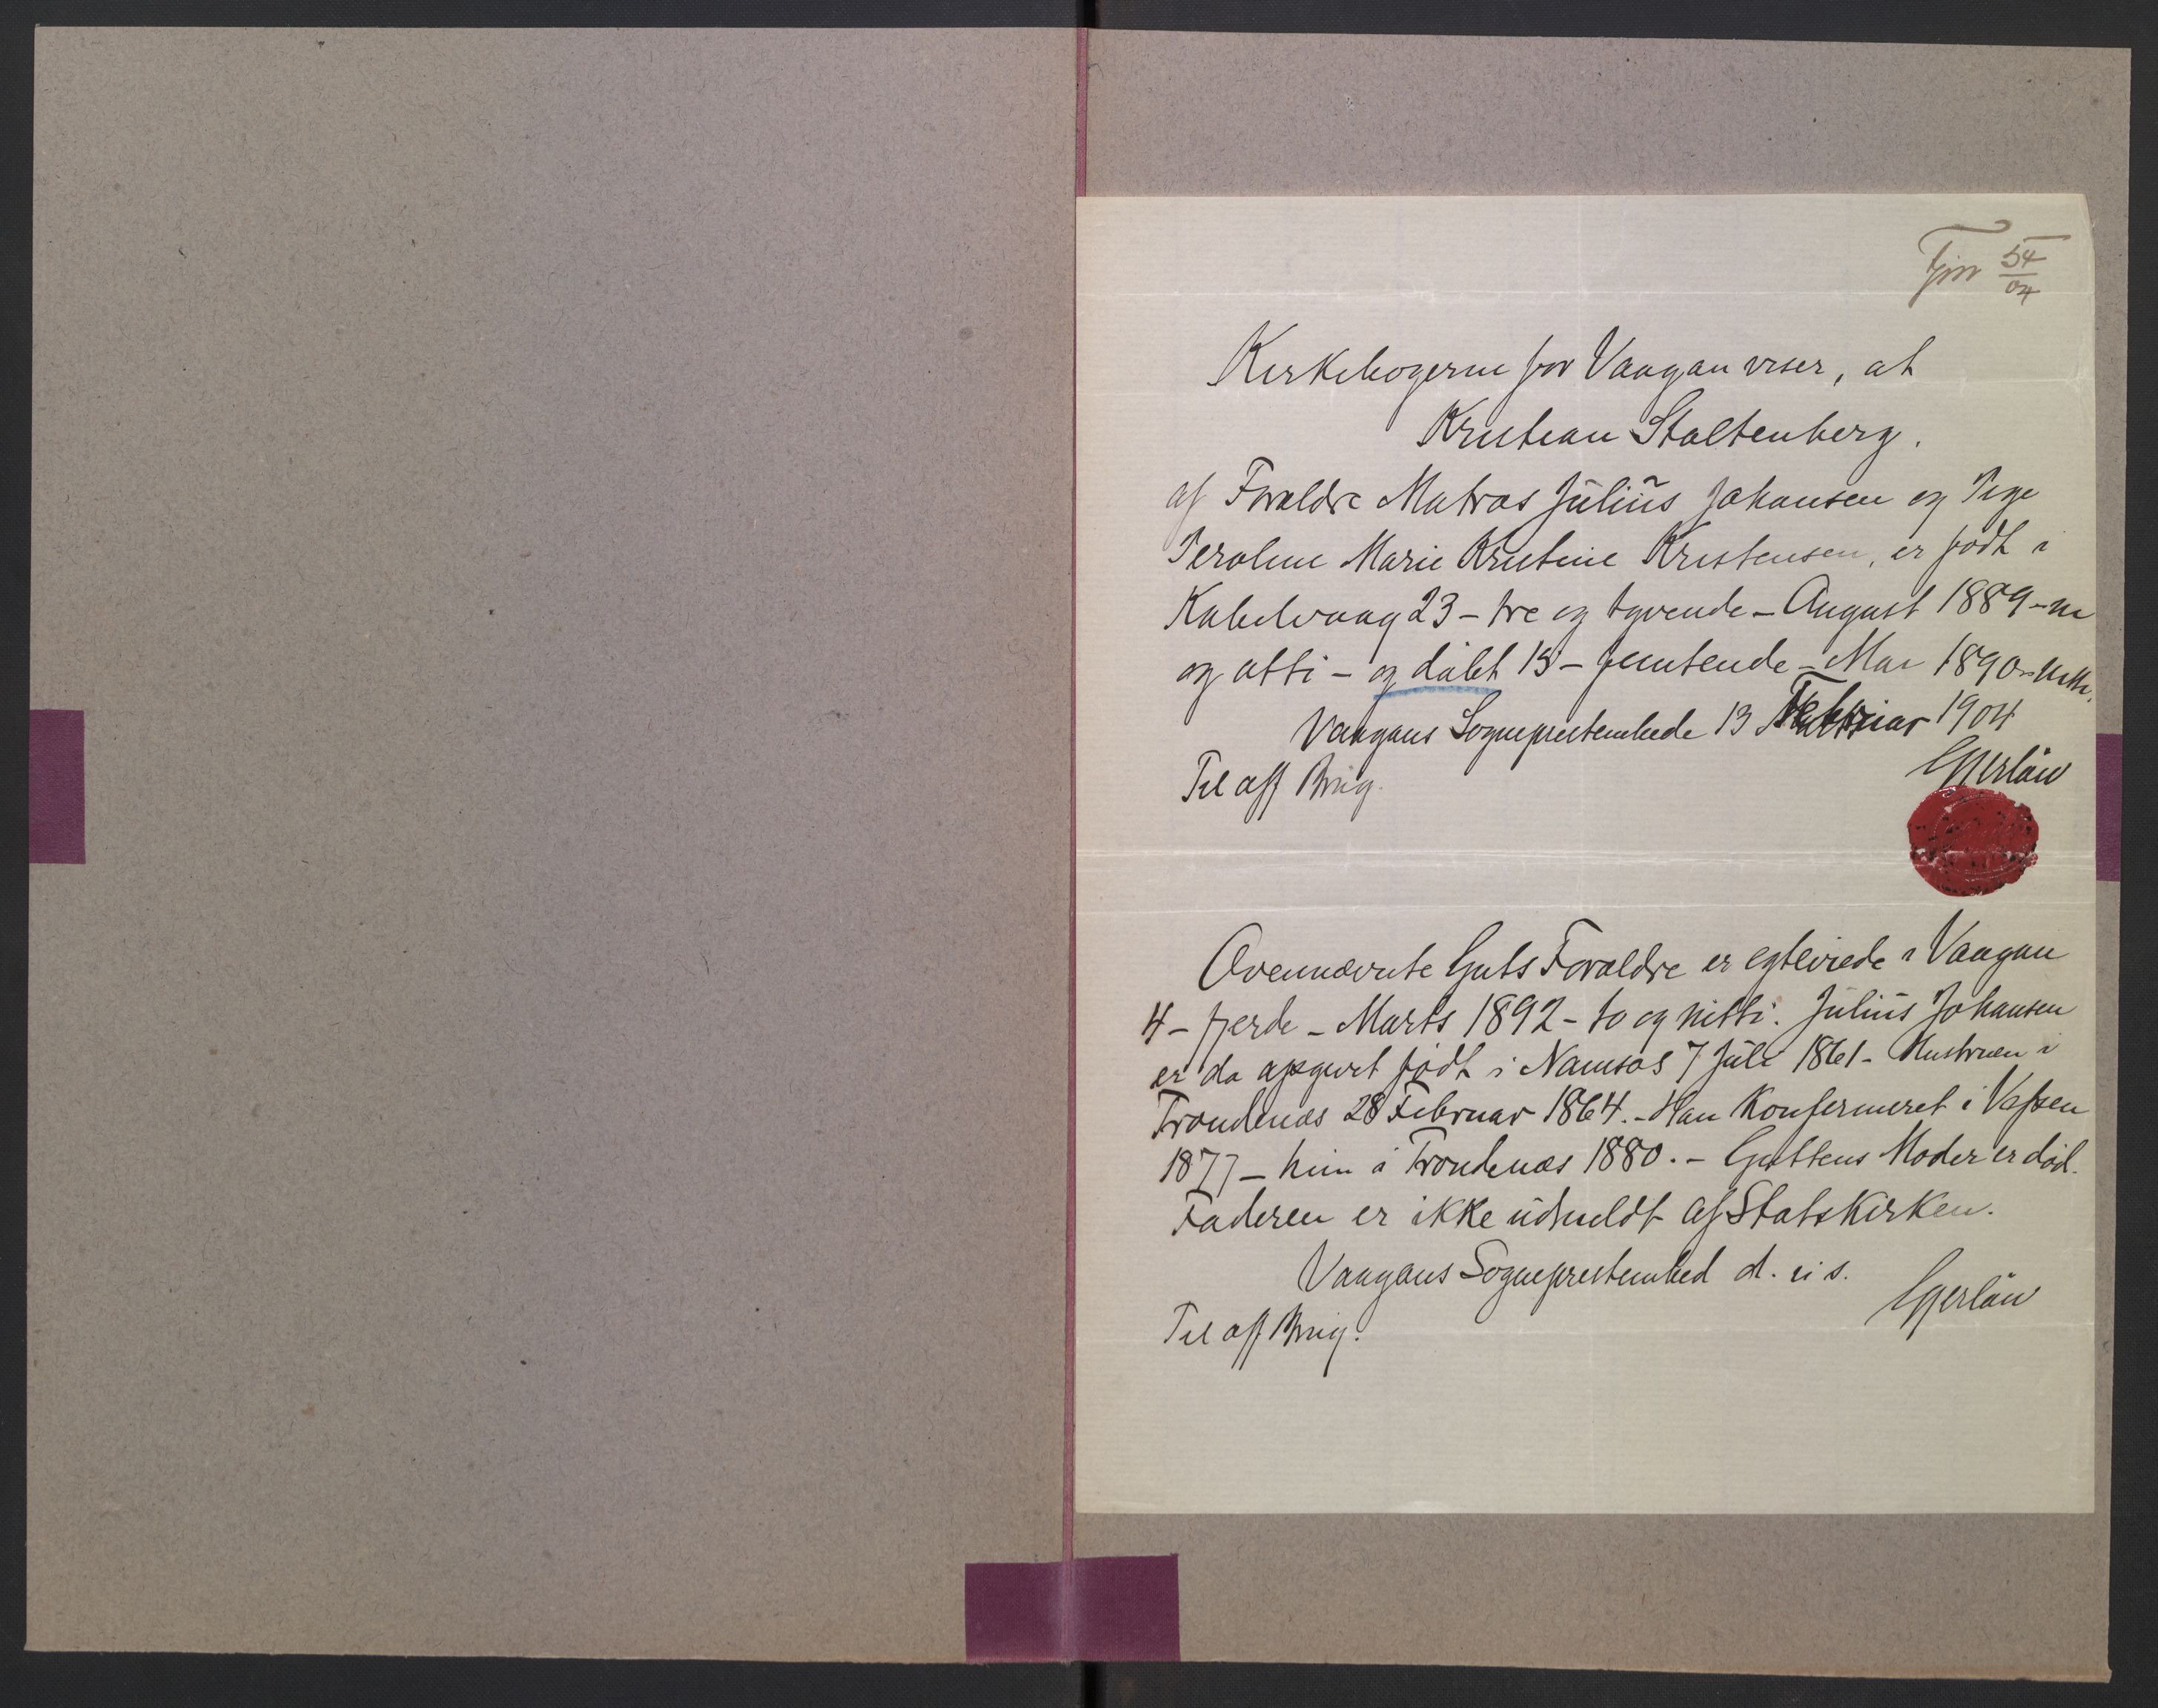 54
04
Kirkebogerne for Vaagan viser, at
Kristian Stoltenberg.
af Forældre Matros Julius Johansen og Pige
Peroline Marie Kristine Kristensen, er født i
Kabelvaag 23 - tre og tyvende - August 1889 - ni
og otti - og døbt 15 - femtende - Mai 1890 - nitti.
Vaagans Sogneprestembede 13 Februar 1904
Til off Brug.
Ovennævnte Guts Forældre er egteviede i Vaagan
4 - fjerde - Marts 1892 - to og nitti. Julius Johansen
er da opgivet født i Namsos 7 Juli 1861 - Hustruen i
Trondenæs 28 Februar 1864. - Han Konfirmeret i Vefsen
1877 - hun i Trondenæs 1880. - Guttens Moder er død.
Faderen er ikke udmeldt af Statskirken.
Vaagans Sogneprestembed d. u s.
Til off Brug.